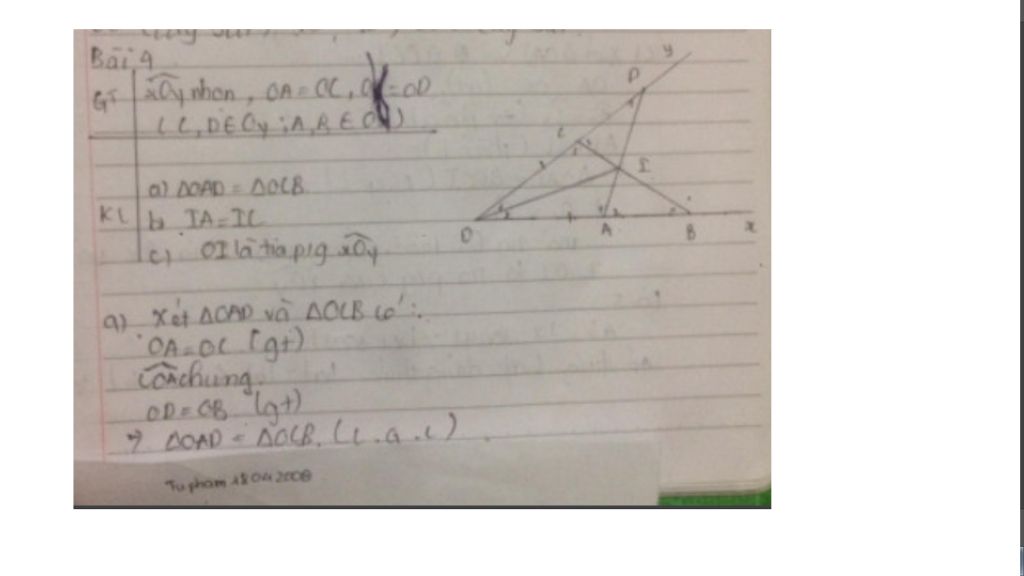 Bài 4
GT xOy nhọn, OA = OC, = OD
(C, D ∈ Oy; A, B ∈ O )
a) ΔOAD = ΔOCB
KL b IA = IC
c) OI là tia p/g xOy
a) Xét ΔOAD và ΔOCB có:
OA = OC (gt)
COA chung.
OD = OB (gt)
=> ΔOAD = ΔOCB. (c.g.c)
y
D
C
I
O A B x
Tu pham 18 04 2008